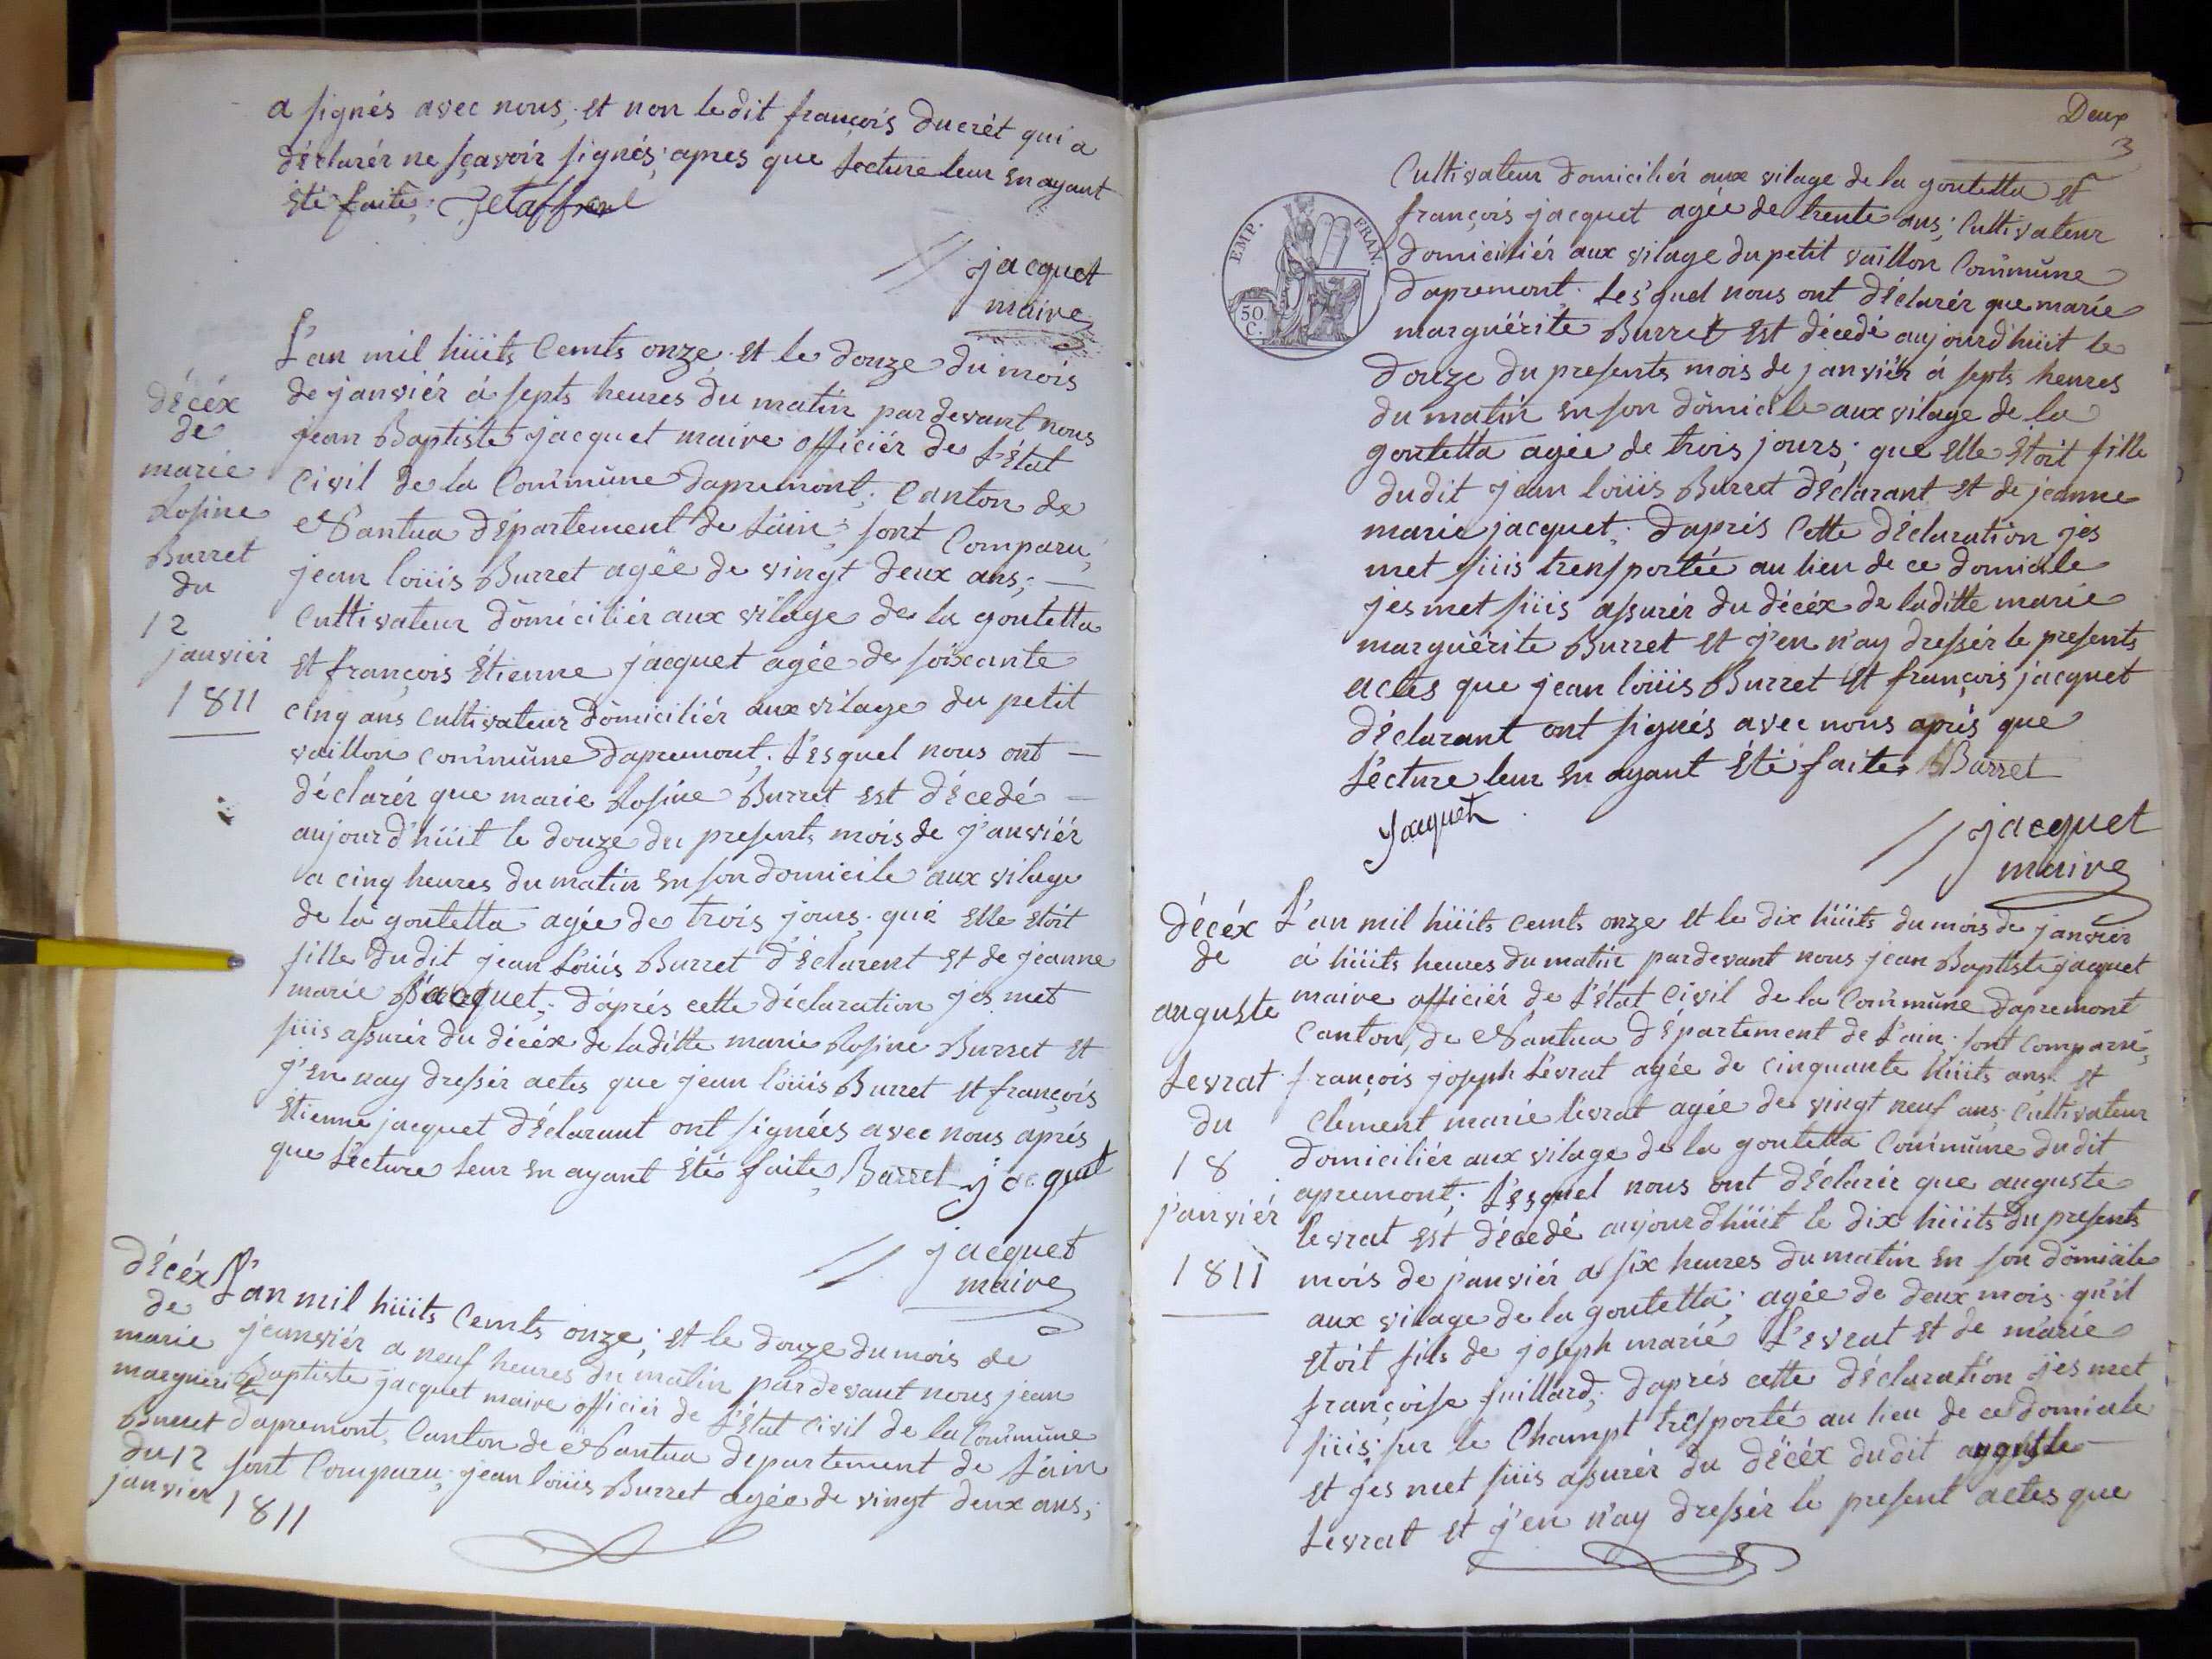 a signés avec nous; et non ledit françois ducrét qui a
déclarér ne sçavoir signés; apres que lecture leur en ayant
été faite;
// jacquet
maire
décéx
de
marie
Rosine
Burret
du
12
janviér
1811
L'an mil hüits Cemts onze; et le douze du mois
de janviér á septs heures du matin pardevant nous
jean Baptiste jacquet maire officiér de l'État
Civil de la Commune dapremont; Canton de
Nantua département de l'ain; sont Comparu;
jean loüis Burret agée de vingt deux ans; —
Cultivateur domiciliér aux vilage de la goutetta
et françois étienne jacquet agée de soixante
cinq ans Cultivateur domiciliér aux vilage du petit
vaillon commune dapremont; Lesquel nous ont —
déclarér que marie Rosine Burret est décedé —
aujourd'hüit le douze du presents mois de j'anviér
a cinq heures du matin en son domicile aux vilage
de la goutetta agée de trois jours; que elle étoit
fille dudit jean Loüis Burret déclarent et de jeanne
marie Jacquet; d'aprés cette déclaration jes met
süis assurér du décéx de laditte marie Rosine Burret et
j'en nay dressér actes que jean loüis Burret et françois
étienne jacquet déclarant ont signées avec nous aprés
que lécture leur en ayant été faite; Barret jacquet
// jacquet
maire
décéx
de
marie
marguérite
Burret
du 12
janvier 1811
L'an mil hüits Cemts onze; et le douze du mois de
jeanviér a neuf heures du matin pardevant nous jean
Baptiste jacquet maire officiér de l'État Civil de la Commune
dapremont, Canton de Nantua departement de l'ain
sont Comparu; jean loüis Burret agée de vingt deux ans;
Deux
3
EMP. FRAN.
50
C.
Cultivateur domiciliér aux vilage de la goutetta et
françois jacquet agée de trente ans; Cultivateur
domiciliér aux vilage du petit vaillon Commune
dapremont; Les'quel nous ont déclarér que marie
marguérite Burret est décedé aujourd'hüit le
douze du presents mois de janviér á septs heures
du matin en son domicile aux vilage de la
goutetta agée de trois jours; que elle étoit fille
dudit jean loüis Burret déclarant et de jeanne
marie jacquet; d'aprés cette déclaration jes
met süis trensportée au lieu de ce domicile
jes met süis assurér du décéx de laditte marie
marguérite Burret et j'en n'ay dressér le presents
actes que jean loüis Burret et françois jacquet
déclarant ont signés avec nous aprés que
Lécture leur en ayant été faite; Barret
Jaquet
// jacquet
maire
décéx
de
auguste
Levrat
du
18
janviér
1811
L'an mil hüits cemts onze et le dix hüits du mois de janviér
á hüits heures du matin pardevant nous jean Baptiste jacquet
maire officiér de l'état Civil de la Commune dapremont
Canton, de Nantua département de l'ain; sont comparu;
françois joseph Levrat agée de cinquante hüits ans et
Clément marie levrat agée de vingt neuf ans; Cultivateur
domiciliér aux vilage de la goutetta Commune dudit
apremont; Lesquel nous ont déclarér que auguste
levrat est décedé aujourd'hüit le dix hüits du presents
mois de janviér a six heures du matin en son domicile
aux vilage de la goutetta; agée de deux mois qu'il
étoit fils de joseph marie L'evrat et de marie
françoise juillard; d'aprés cette déclaration jes met
süis; sur le Champt trésporté au lieu de ce domicile
et jes met süis assurér du décéx dudit auguste
Levrat et j'en n'ay dressér le present actes que